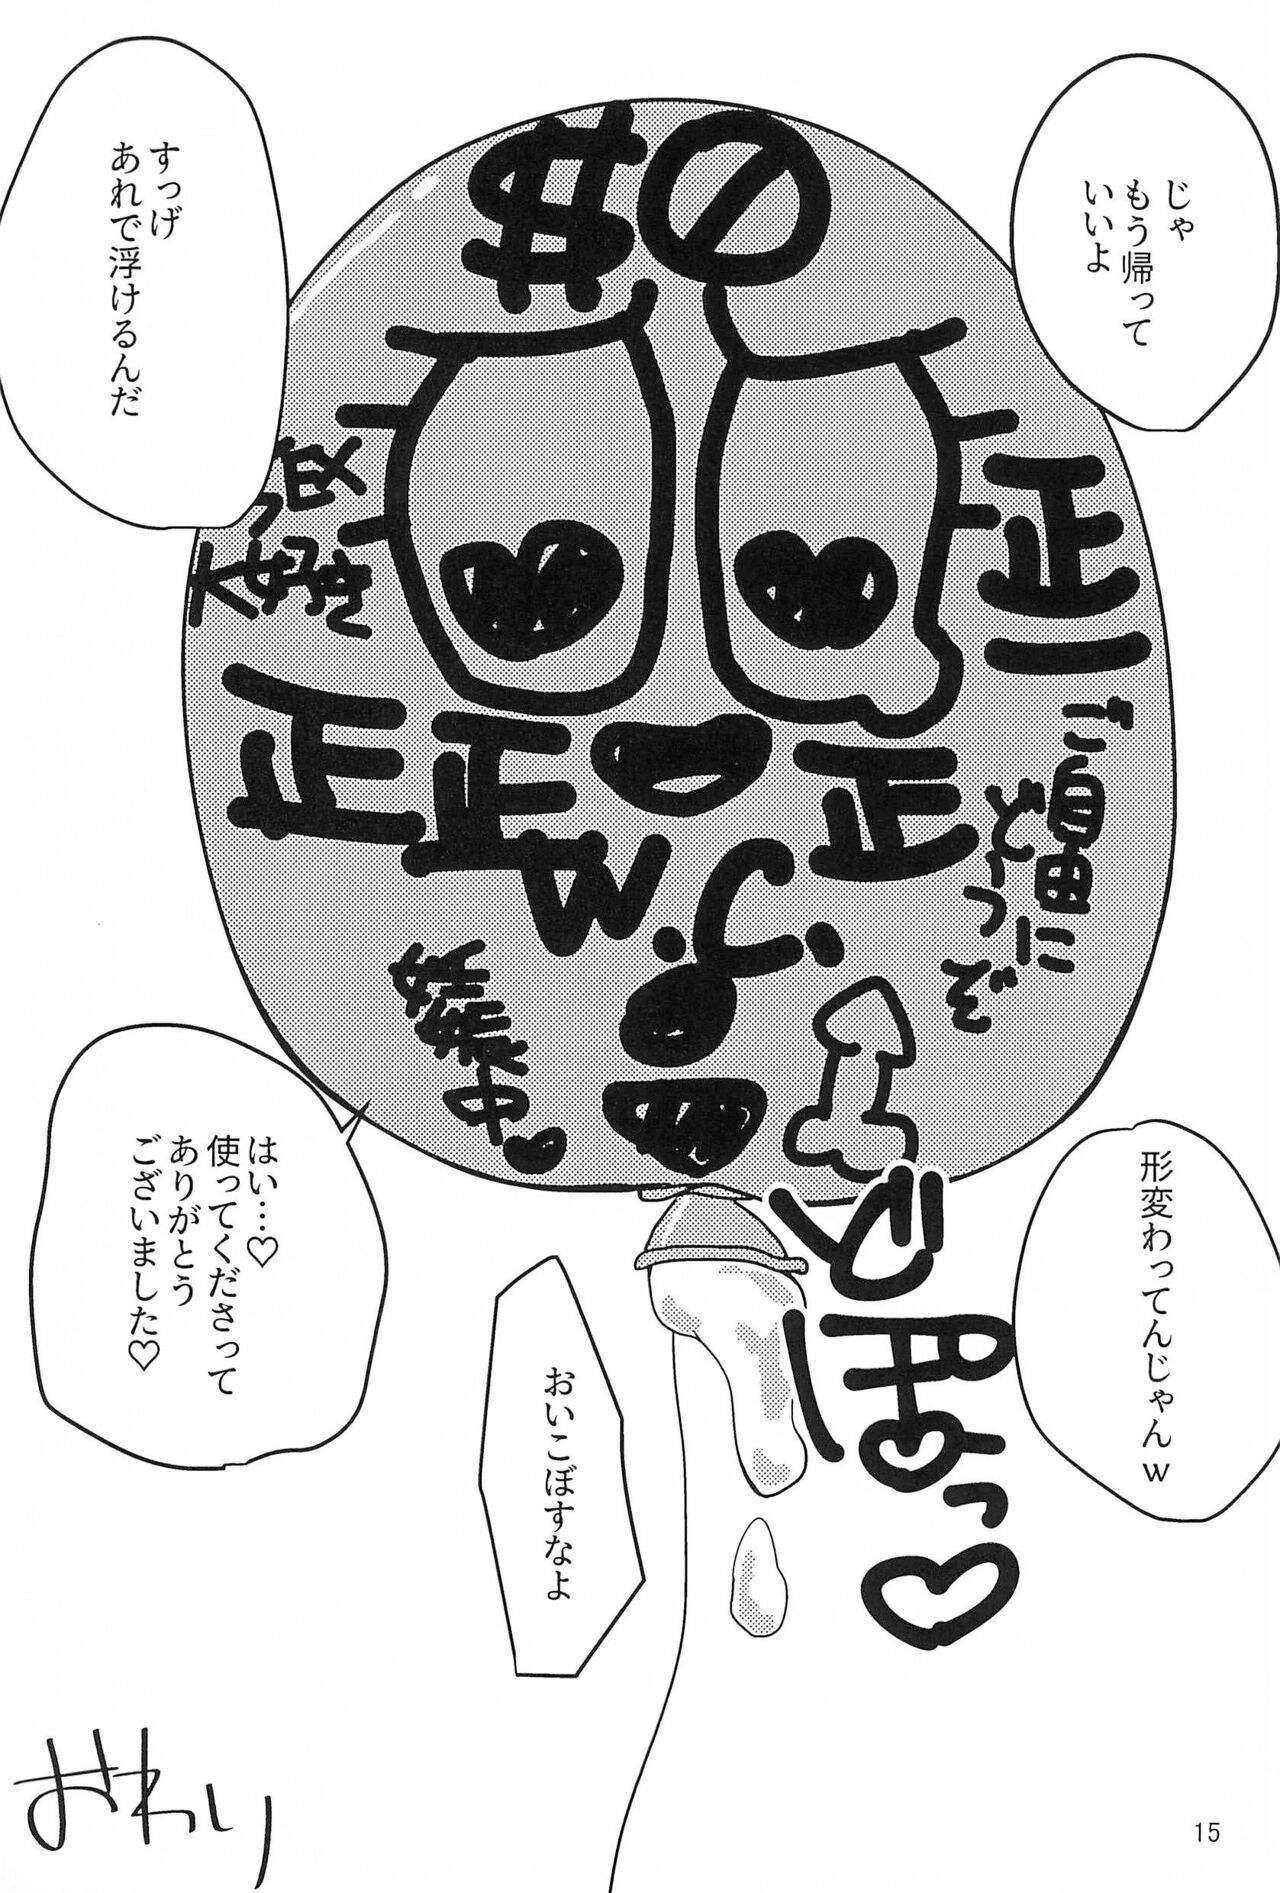 じゃ
もう帰って
いいよ
すっげ
あれで浮けるんだ
$0
大好き
正
正
正
正
妊娠中
形変わってんじゃんw
はい…♡
使ってくださって
ありがとう
ございました♡
おいこぼすなよ
っぽっ♡
おわり
15